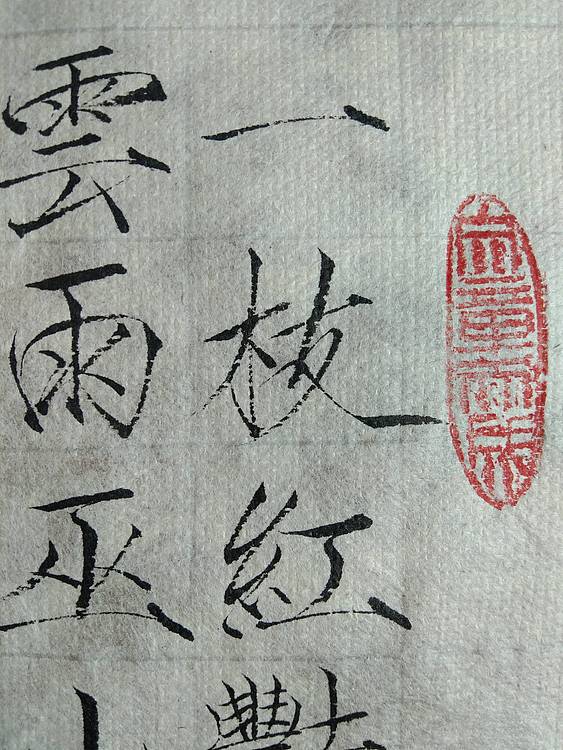 一枝紅豔
雲雨巫山